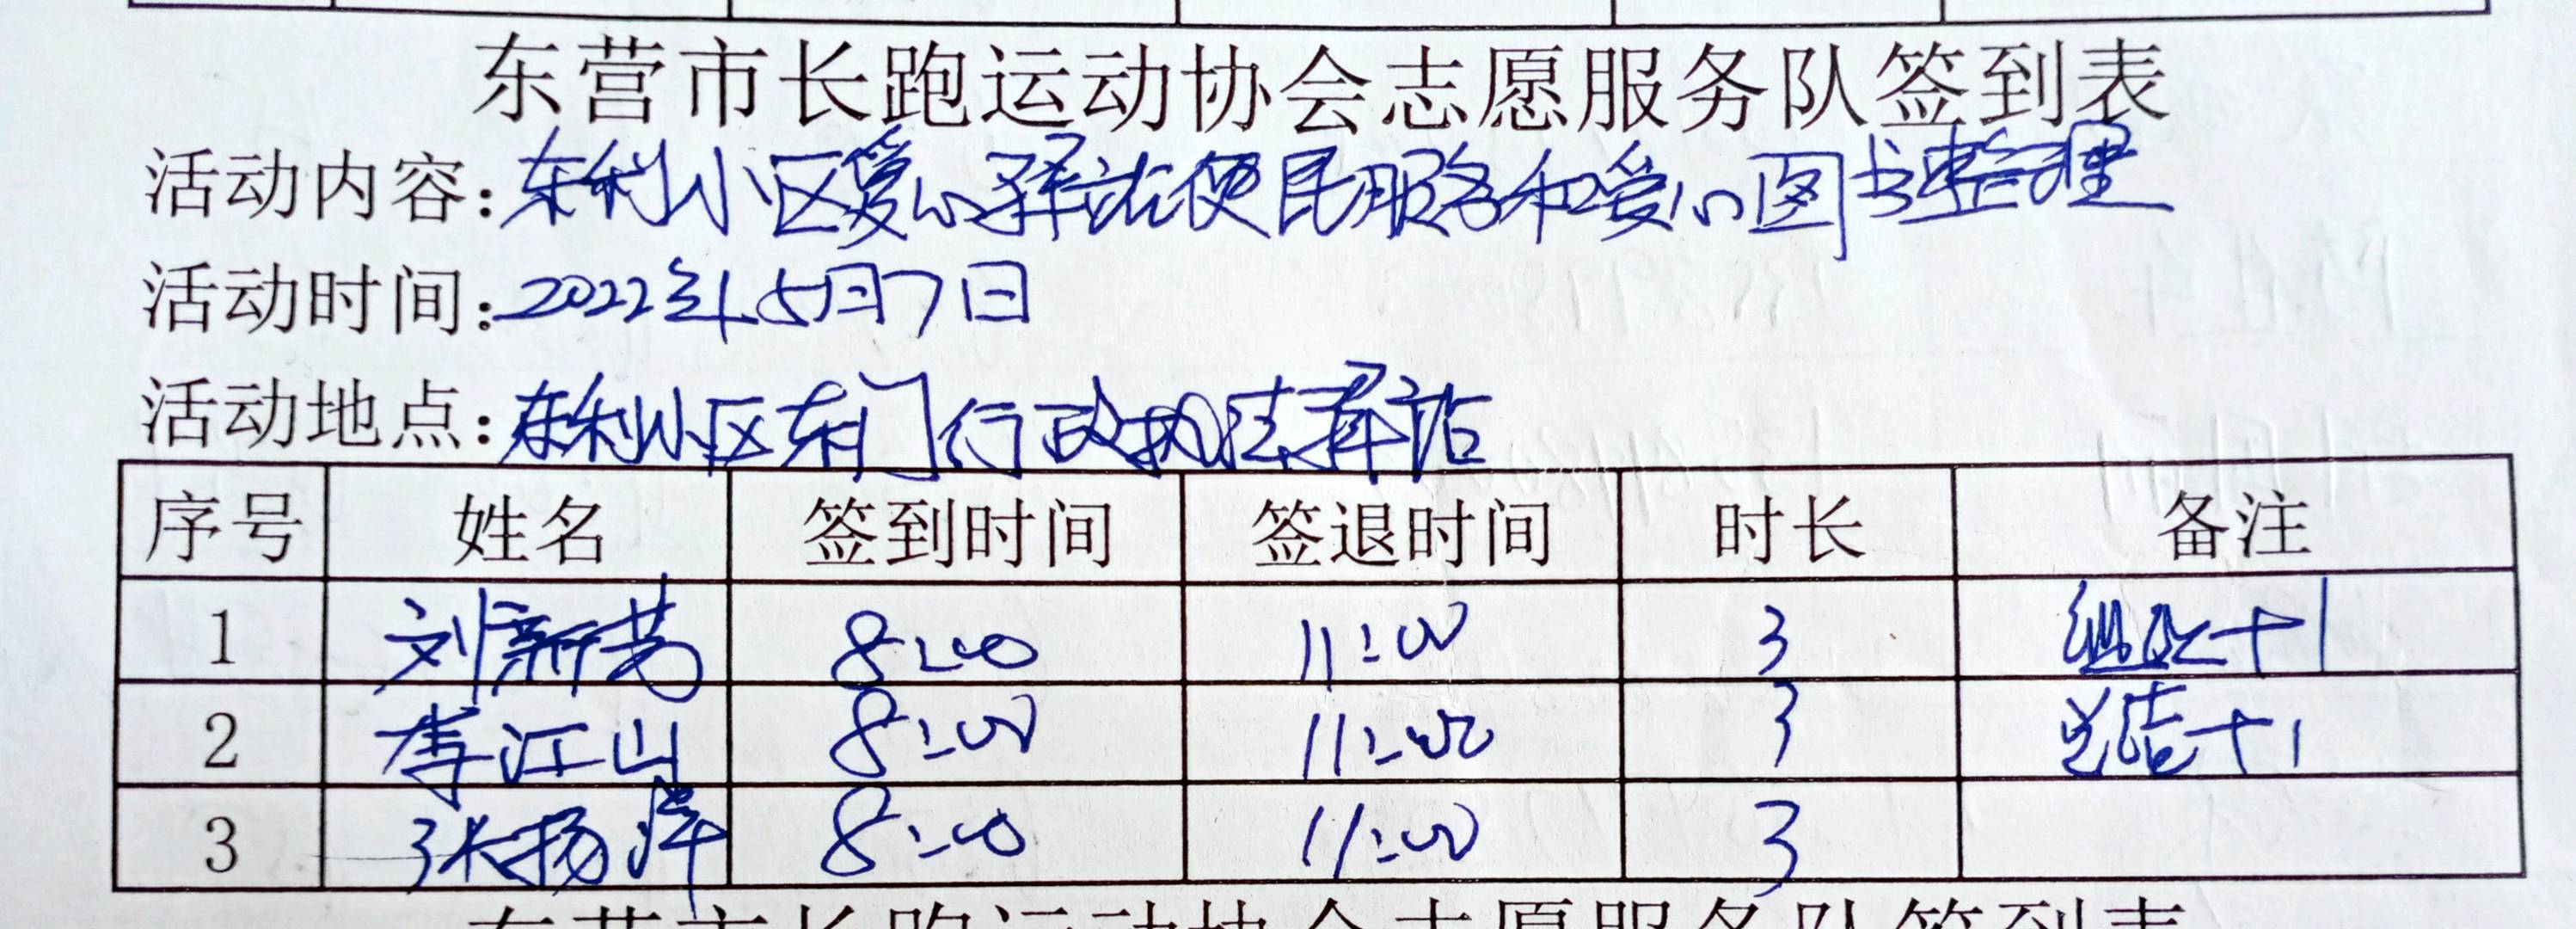 东营市长跑运动协会志愿服务队签到表
活动内容：东利小区爱心驿站便民服务和爱心图书整理
活动时间：2022年5月7日
活动地点：东利小区东门行政执法驿站
序号 姓名 签到时间 签退时间 时长 备注
1 刘新芳 8:00 11:00 3 组织+1
2 李江山 8:00 11:00 3 总结+1
3 张扬洋 8:00 11:00 3
东营市长跑运动协会志愿服务队签到表